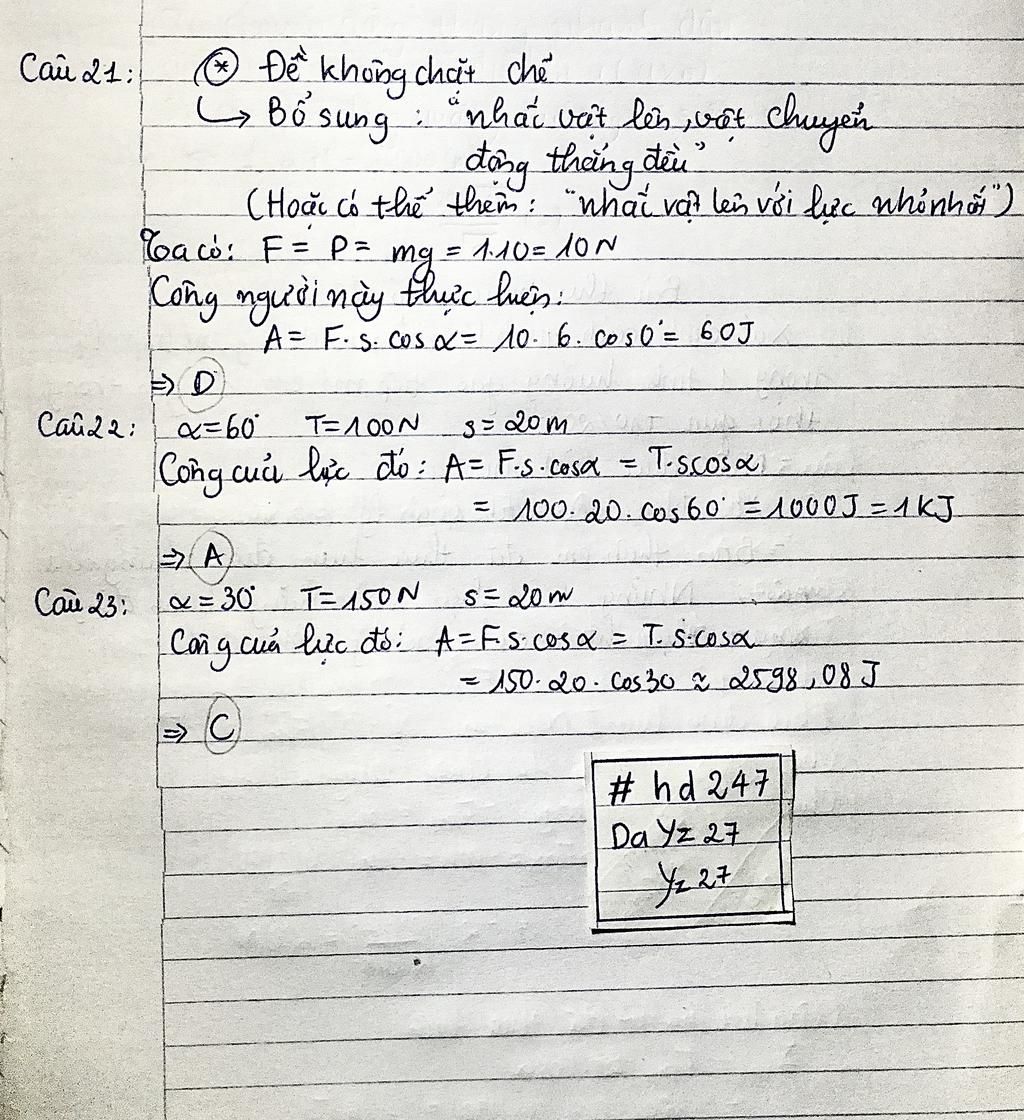 Câu 21: (*) Đề không chặt chẽ
↳ Bổ sung : "nhấc vật lên, vật chuyển
động thẳng đều"
(Hoặc có thể thêm: "nhấc vật lên với lực nhỏ nhất")
Ta có: F = P = mg = 1.10 = 10N
Công người này thực hiện:
A = F.s.cosα = 10.6.cos0° = 60J
⇒ D
Câu 22: α=60° T=100N s=20m
Công của lực đó: A= F.s.cosα = T.s.cosα
= 100.20.cos60° = 1000J = 1KJ
⇒ A
Câu 23: α=30° T=150N s=20m
Công của lực đó: A=F.s.cosα = T.s.cosα
= 150.20.cos30 ≈ 2598,08J
⇒ C
# hd 247
Da Yz 27
Yz 27